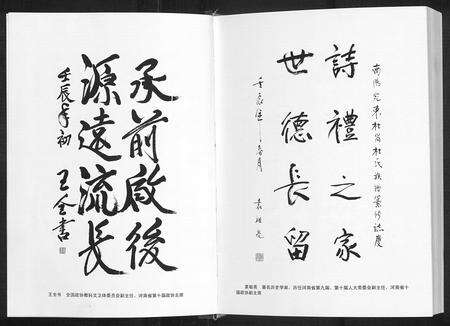 承前啟後
源遠流長
壬辰年初 王全書
王全书 全国政协教科文卫体委员会副主任、河南省第十届政协主席
詩禮之家
世德長留
袁祖亮
袁祖亮 著名历史学家，历任河南省第九届、第十届人大常委会副主任，河南省十届政协副主席